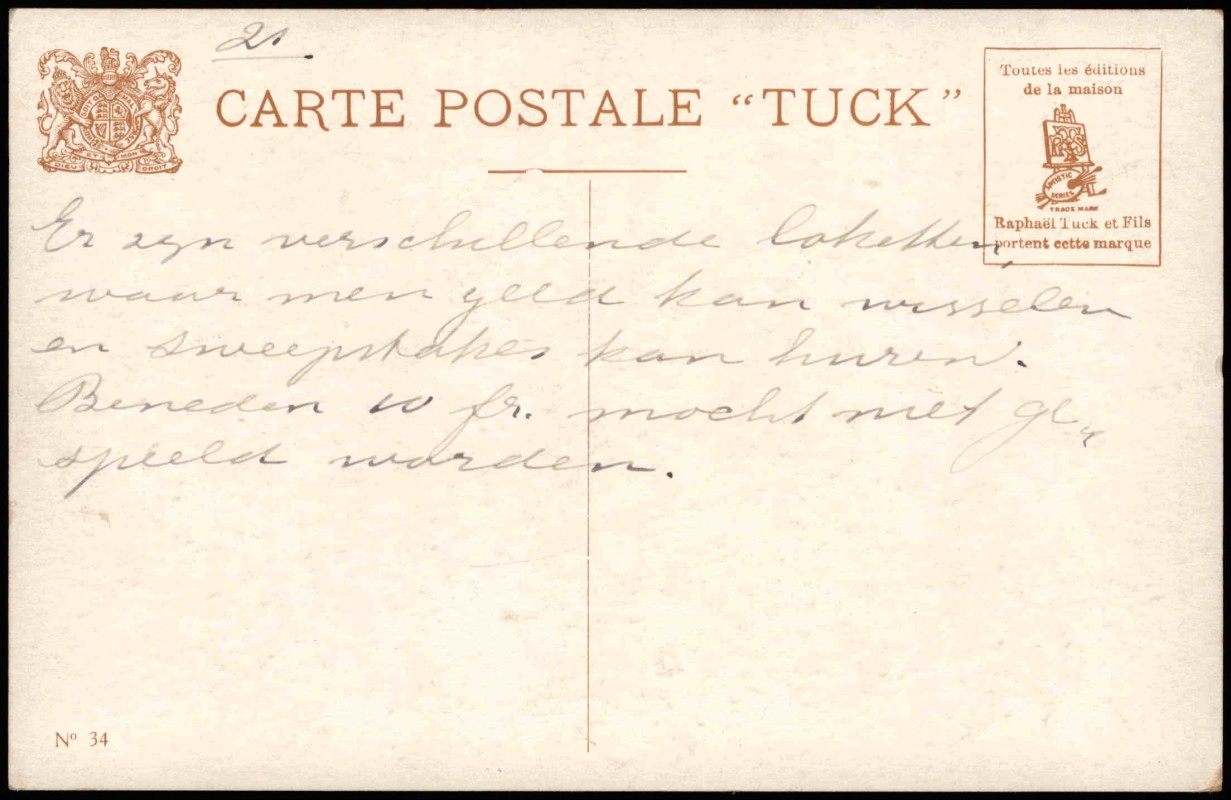 21.
CARTE POSTALE “TUCK”
Toutes les éditions
de la maison
ARTISTIC
SERIES
TRADE MARK
Raphaël Tuck et Fils
portent cette marque
DIEU ET MON DROIT
Er zyn verschillende loketten,
waar men geld kan wisselen
en sweepstakes kan huren.
Beneden 10 fr. mocht niet ge„
speeld worden.
Nº 34